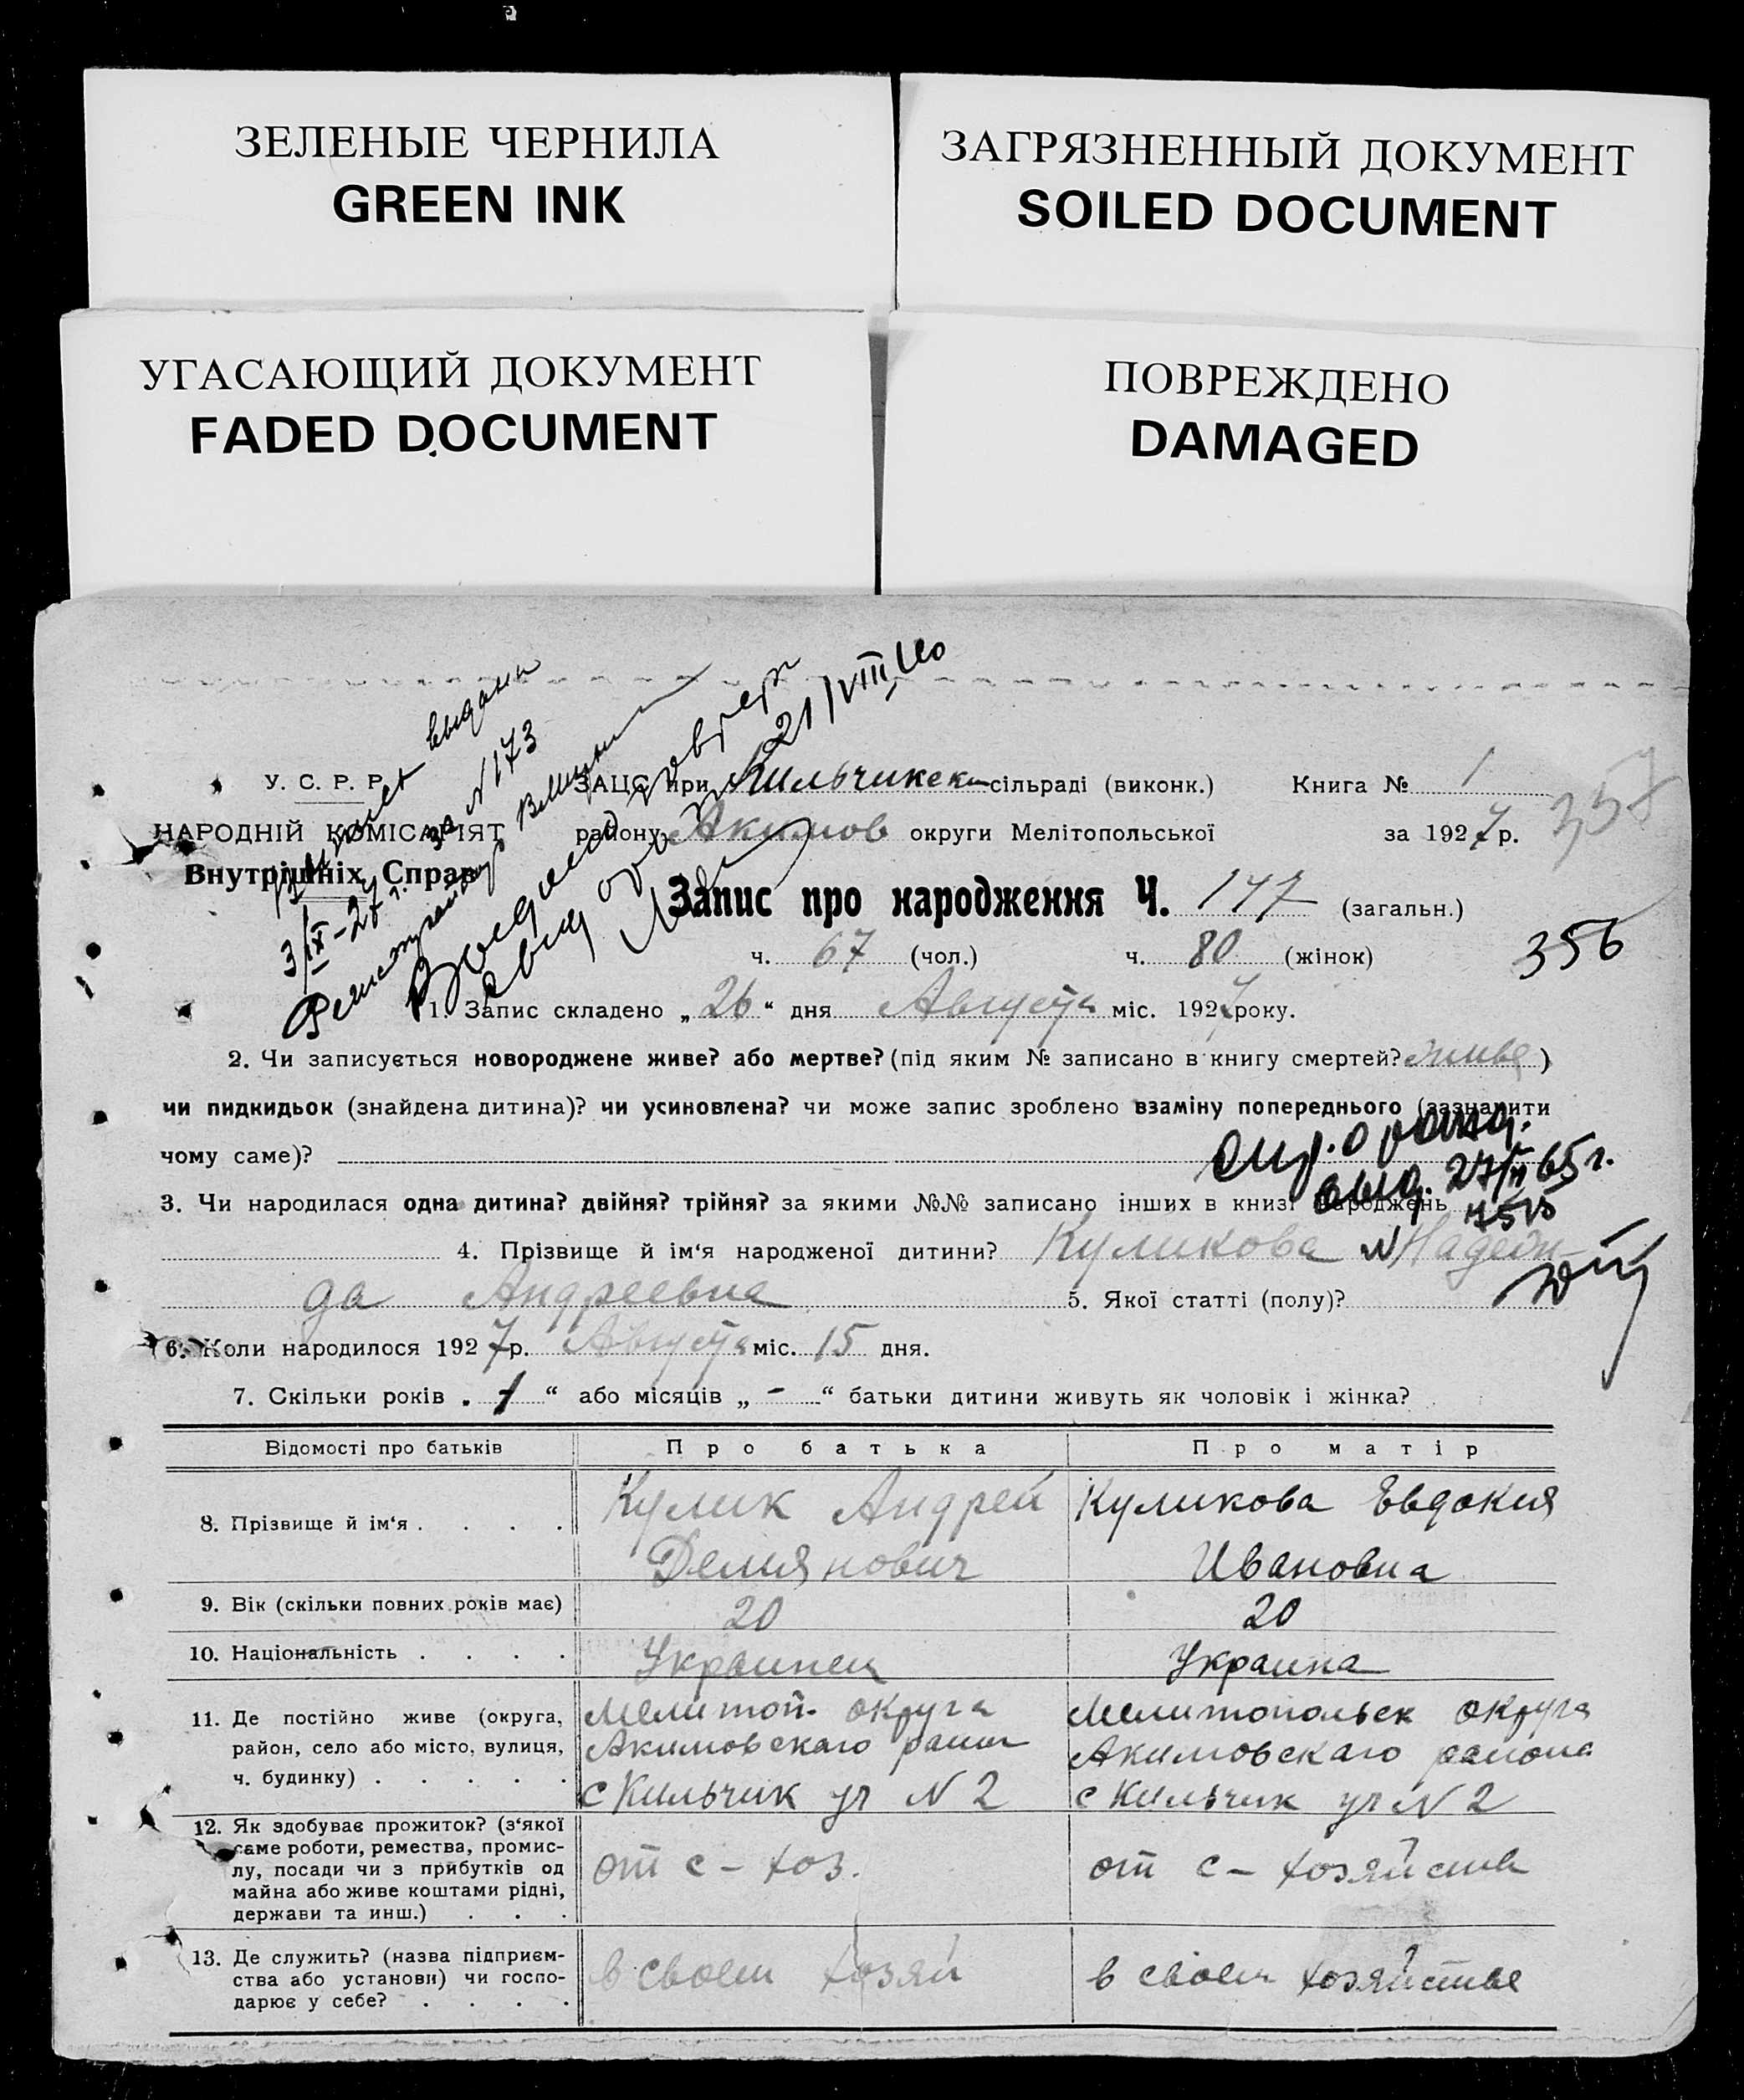 ЗЕЛЕНЫЕ ЧЕРНИЛА
GREEN INK
ЗАГРЯЗНЕННЫЙ ДОКУМЕНТ
SOILED DOCUMENT
УГАСАЮЩИЙ ДОКУМЕНТ
FADED DOCUMENT
ПОВРЕЖДЕНО
DAMAGED
выдана
за N 173
3/IX-27 г.
21/VIII
У. С. Р. Р.
НАРОДНІЙ КОМІСАРІЯТ
Внутрішніх Справ
ЗАЦС при Кильчикск сільраді (виконк.) Книга № 1
району Акимов округи Мелітопольської за 1927 р.
357
Запис про народження Ч. 147 (загальн.)
ч. 67 (чол.) ч. 80 (жінок)
356
1. Запис складено „26“ дня Августа міс. 1927 року.
2. Чи записується новороджене живе? або мертве? (під яким № записано в книгу смертей? живе)
чи пидкидьок (знайдена дитина)? чи усиновлена? чи може запис зроблено взаміну попереднього (зазначити
чому саме)?
выд. 27/II 65 г.
3. Чи народилася одна дитина? двійня? трійня? за якими №№ записано інших в книзі народжень
4. Прізвище й ім'я народженої дитини? Куликова Надеж-
да Андреевна 5. Якої статті (полу)?
6. Коли народилося 1927 р. Августа міс. 15 дня.
7. Скільки років „1“ або місяців „-“ батьки дитини живуть як чоловік і жінка?
Відомості про батьків Про батька Про матір
8. Прізвище й ім'я . . . .
Кулик Андрей
Демянович
Куликова Евдокия
Ивановна
9. Вік (скільки повних років має) 20 20
10. Національність . . . . Украинец Украинка
11. Де постійно живе (округа,
район, село або місто, вулиця,
ч. будинку) . . . . .
Мелитоп. округа
Акимовскаго район
с Кильчик ул N 2
Мелитопольск округа
Акимовскаго района
с Кильчик ул N 2
12. Як здобуває прожиток? (з'якої
саме роботи, ремества, промис-
лу, посади чи з прибутків од
майна або живе коштами рідні,
держави та инш.) . . .
от с-хоз.
от с-хозяйства
13. Де служить? (назва підприєм-
ства або установи) чи госпо-
дарює у себе? . . . .
в своем хозяй
в своем хозяйстве